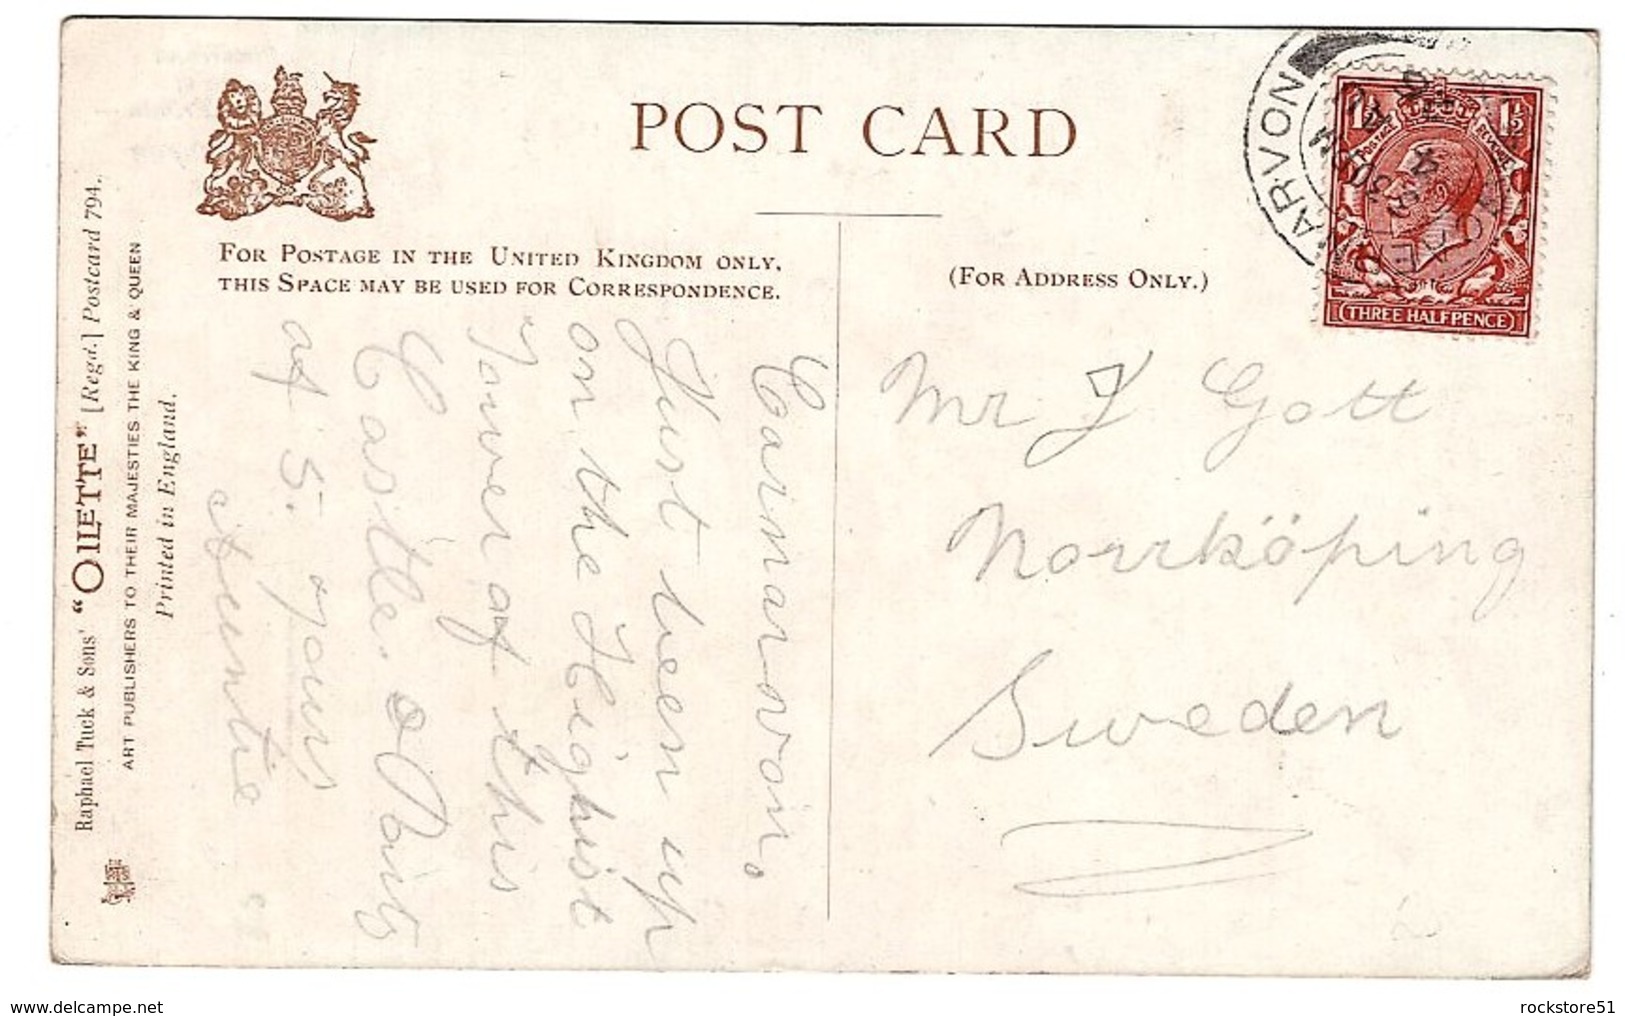 POST CARD
FOR POSTAGE IN THE UNITED KINGDOM ONLY.
THIS SPACE MAY BE USED FOR CORRESPONDENCE.
(FOR ADDRESS ONLY.)
Raphael Tuck & Sons' "OILETTE" [Regd.] Postcard 794.
ART PUBLISHERS TO THEIR MAJESTIES THE KING & QUEEN
Printed in England.
Carnarvon.
Just been up
on the Highist
Tower of this
Castle.
at 5. yours
Mr J Gott
Norrköping
Sweden
ARVON
1½ 1½
POSTAGE REVENUE
(THREE HALFPENCE)
delcampe.net
rockstore51